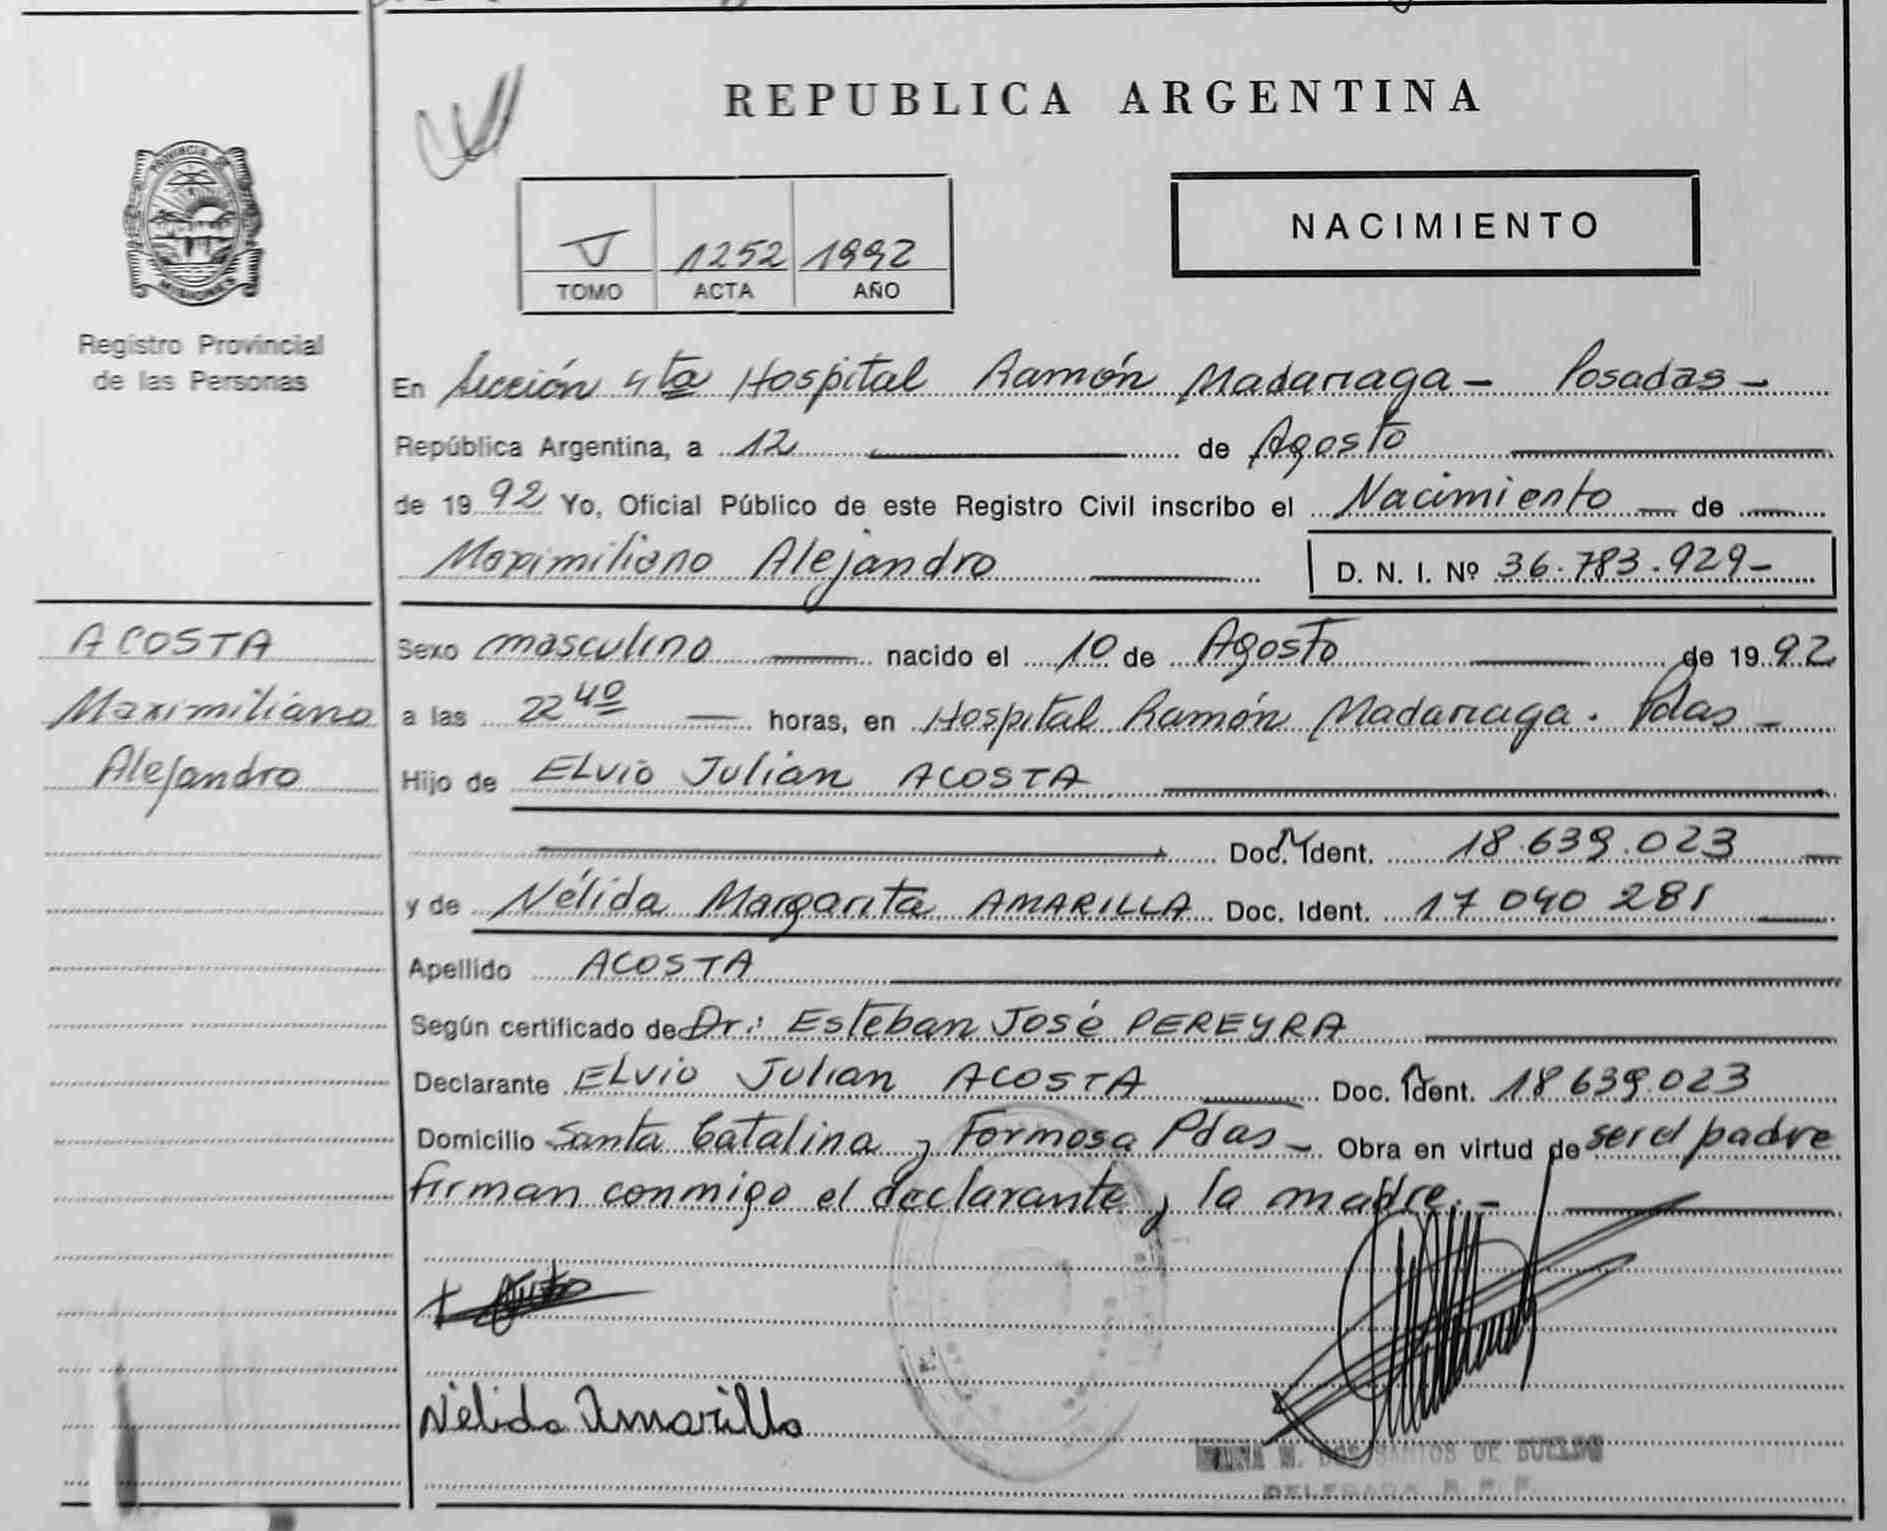 REPUBLICA ARGENTINA
PROVINCIA DE MISIONES
Registro Provincial
de las Personas
NACIMIENTO
V 1252 1992
TOMO ACTA AÑO
En Sección 4ta Hospital Ramón Madariaga - Posadas -
República Argentina, a 12 de Agosto
de 1992 Yo, Oficial Público de este Registro Civil inscribo el Nacimiento de
Maximiliano Alejandro D. N. I. Nº 36.783.929-
ACOSTA
Maximiliano
Alejandro
Sexo masculino nacido el 10 de Agosto de 1992
a las 22 40 horas, en Hospital Ramón Madariaga. Pdas -
Hijo de ELVIO JULIAN ACOSTA
Doc. Ident. 18.639.023
y de Nélida Margarita AMARILLA Doc. Ident. 17 040 281
Apellido ACOSTA
Según certificado de Dr.: Esteban José PEREYRA
Declarante ELVIO JULIAN ACOSTA Doc. Ident. 18 639.023
Domicilio Santa Catalina y Formosa Pdas - Obra en virtud de ser el padre
firman conmigo el declarante y la madre. -
Nélida Amarilla
DOS SANTOS DE BUENO
DELEGADA